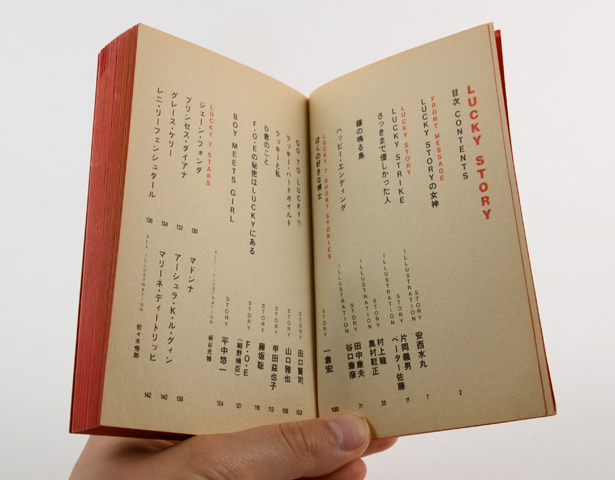 LUCKY STORY
目次 CONTENTS 2
FRONT MESSAGE
LUCKY STORYの女神 STORY 安西水丸 7
LUCKY STORY
LUCKY STRIKE STORY 片岡義男 11
ILLUSTRATION ペーター佐藤
さっきまで優しかった人 STORY 村上龍 35
ILLUSTRATION 奥村靫正
鐘の鳴る島 STORY 田中康夫 71
ILLUSTRATION 谷口康彦
ハッピー・エンディング
LUCKY 7 SHORT STORIES
ぼくの好きな博士 STORY 一倉宏 100
GO TO LUCKY!! STORY 田口賢司 103
ラッキー・ハードボイルド STORY 山口雅也 108
ラッキーと私 STORY 甲田益也子 113
のこと STORY 藤坂聡 118
F・O・Eの秘密はLUCKYにある STORY F・O・E (細野晴臣) 121
BOY MEETS GIRL STORY 平中悠一 124
LUCKY 7 STARS ALL ILLUSTRATION
ジェーン・フォンダ 130
プリンセス・ダイアナ 132
グレース・ケリー 134
レニ・リーフェンシュタール 136
マドンナ 138
アーシュラ・K・ル・グィン 140
マリーネ・ディートリッヒ 142
ALL ILLUSTRATION 佐々木悟郎